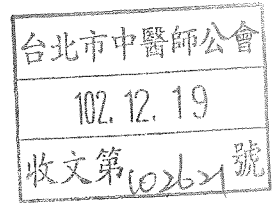 台北市中醫師公會
102.12.19
收文第102621號